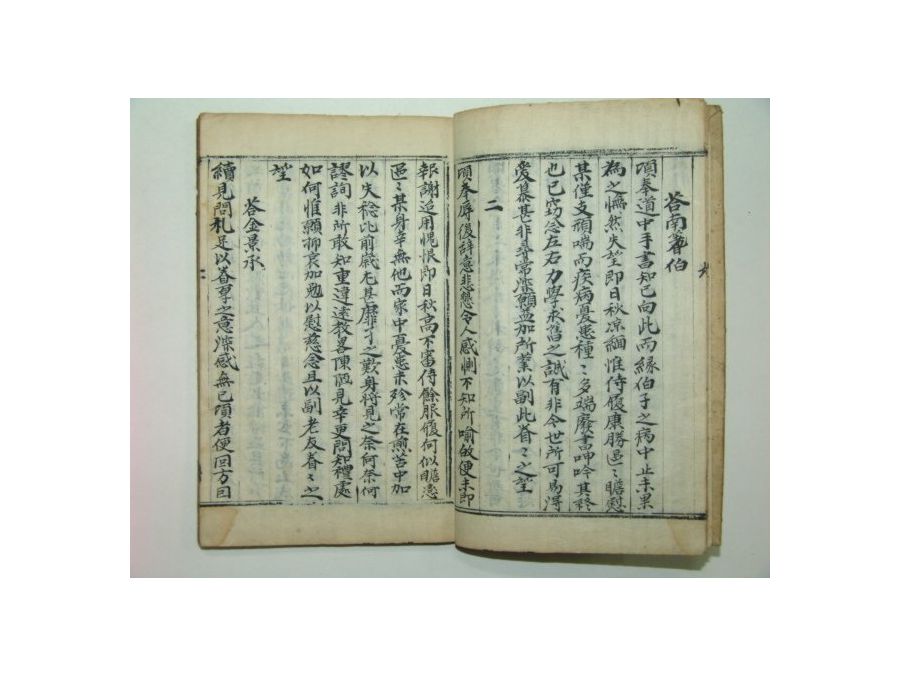 答南蓍伯
頃奉道中手書知已向此而緣伯子之病中止未果
為之憮然失望即日秋凉緬惟侍履康勝區〻瞻慰
某僅支頑喘而疾病憂患種〻多端廢書呻吟其終
也已窃念左右力學求旨之誠有非今世所可易得
愛慕甚非尋常深願益加所業以副此眷〻之望
二
頃奉辱復辭意悲懇令人感惻不知所喻敀便未即
報謝追用愧恨即日秋高不審侍餘服履何似瞻恋
區〻某身幸無他而家中憂患未殄常在煎苦中加
以失稔比前歲尤甚靡孑之歎身將見之奈何奈何
謬詢非所敢知重違遠教畧陳陋見幸更問知禮處
如何惟願抑哀加勉以慰慈念且以副老友眷〻之
望
答金景承
續見問札足以眷厚之意深感無已頃者便回方曰